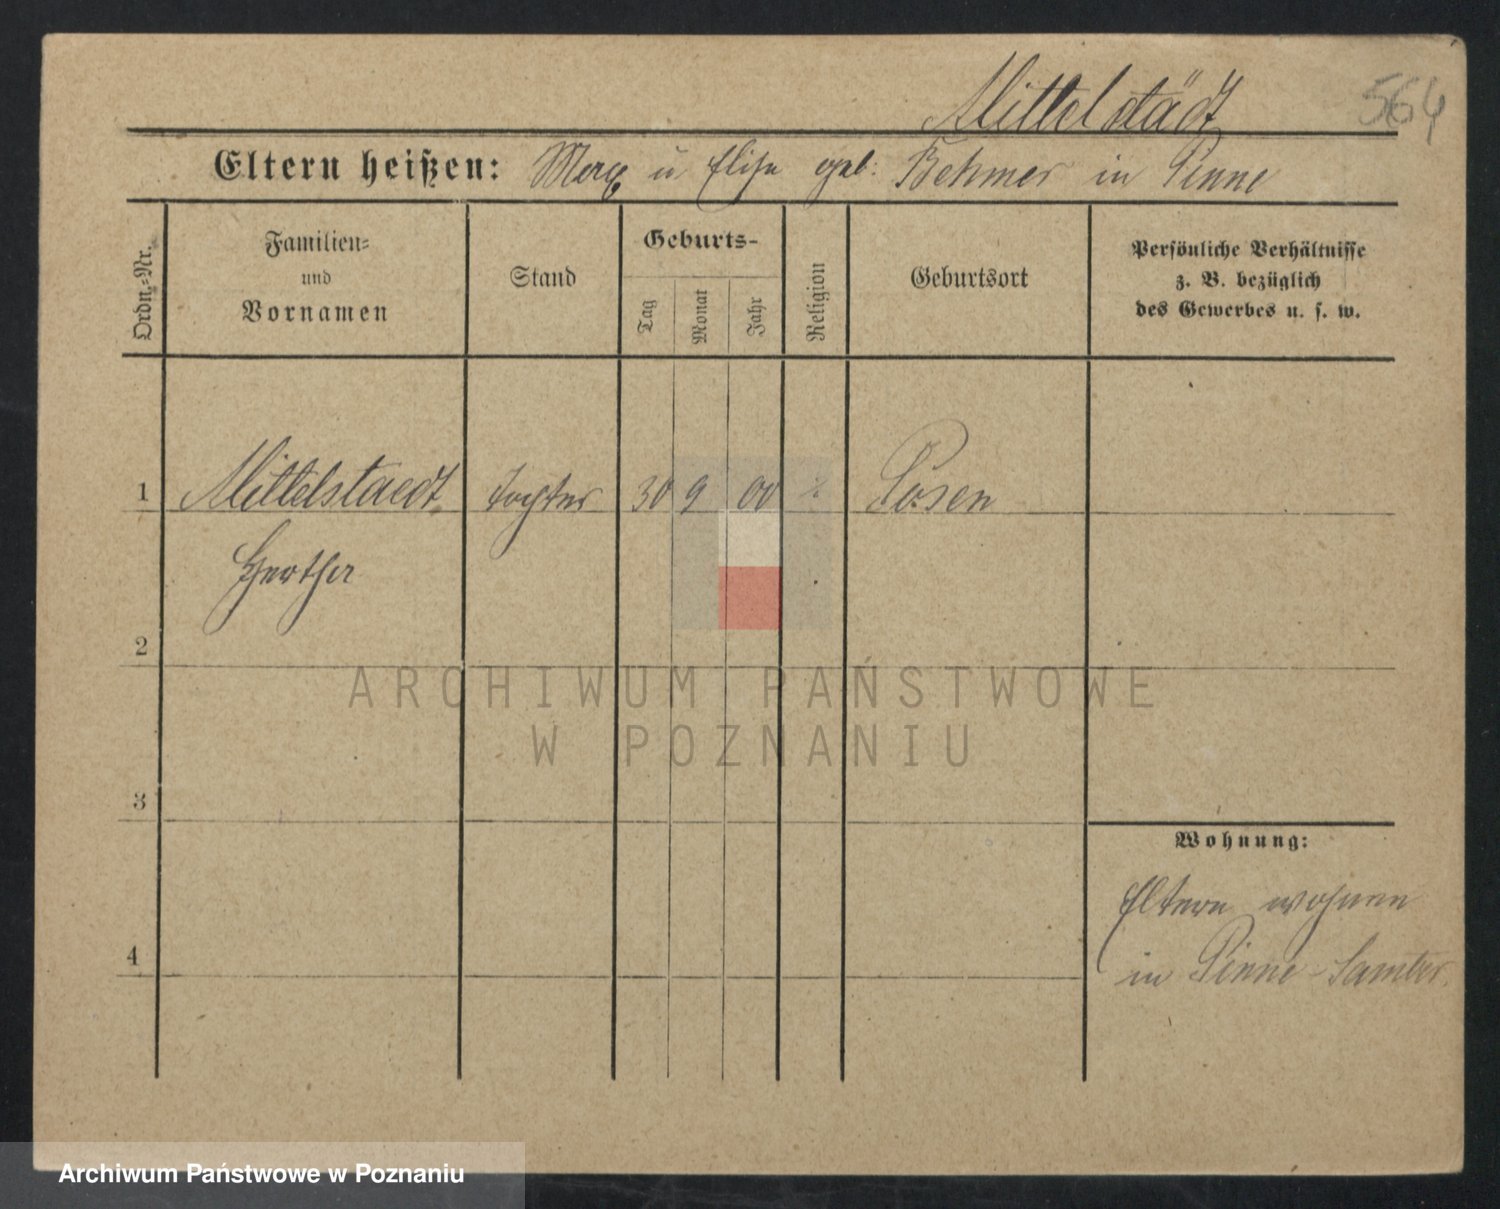 Mittelstädt
564
Eltern heißen: Max u Elise geb. Behmer in Pinne
Ordn.-Nr.
Familien-
und
Vornamen
Stand
Geburts-
Tag
Monat
Jahr
Religion
Geburtsort
Persönliche Verhältnisse
z. B. bezüglich
des Gewerbes u. s. w.
1 Mittelstaedt Tochter 30 9 00 Posen
Hertha
2
3
4
Wohnung:
Eltern wohnen
in Pinne-Samter.
ARCHIWUM PAŃSTWOWE
W POZNANIU
Archiwum Państwowe w Poznaniu